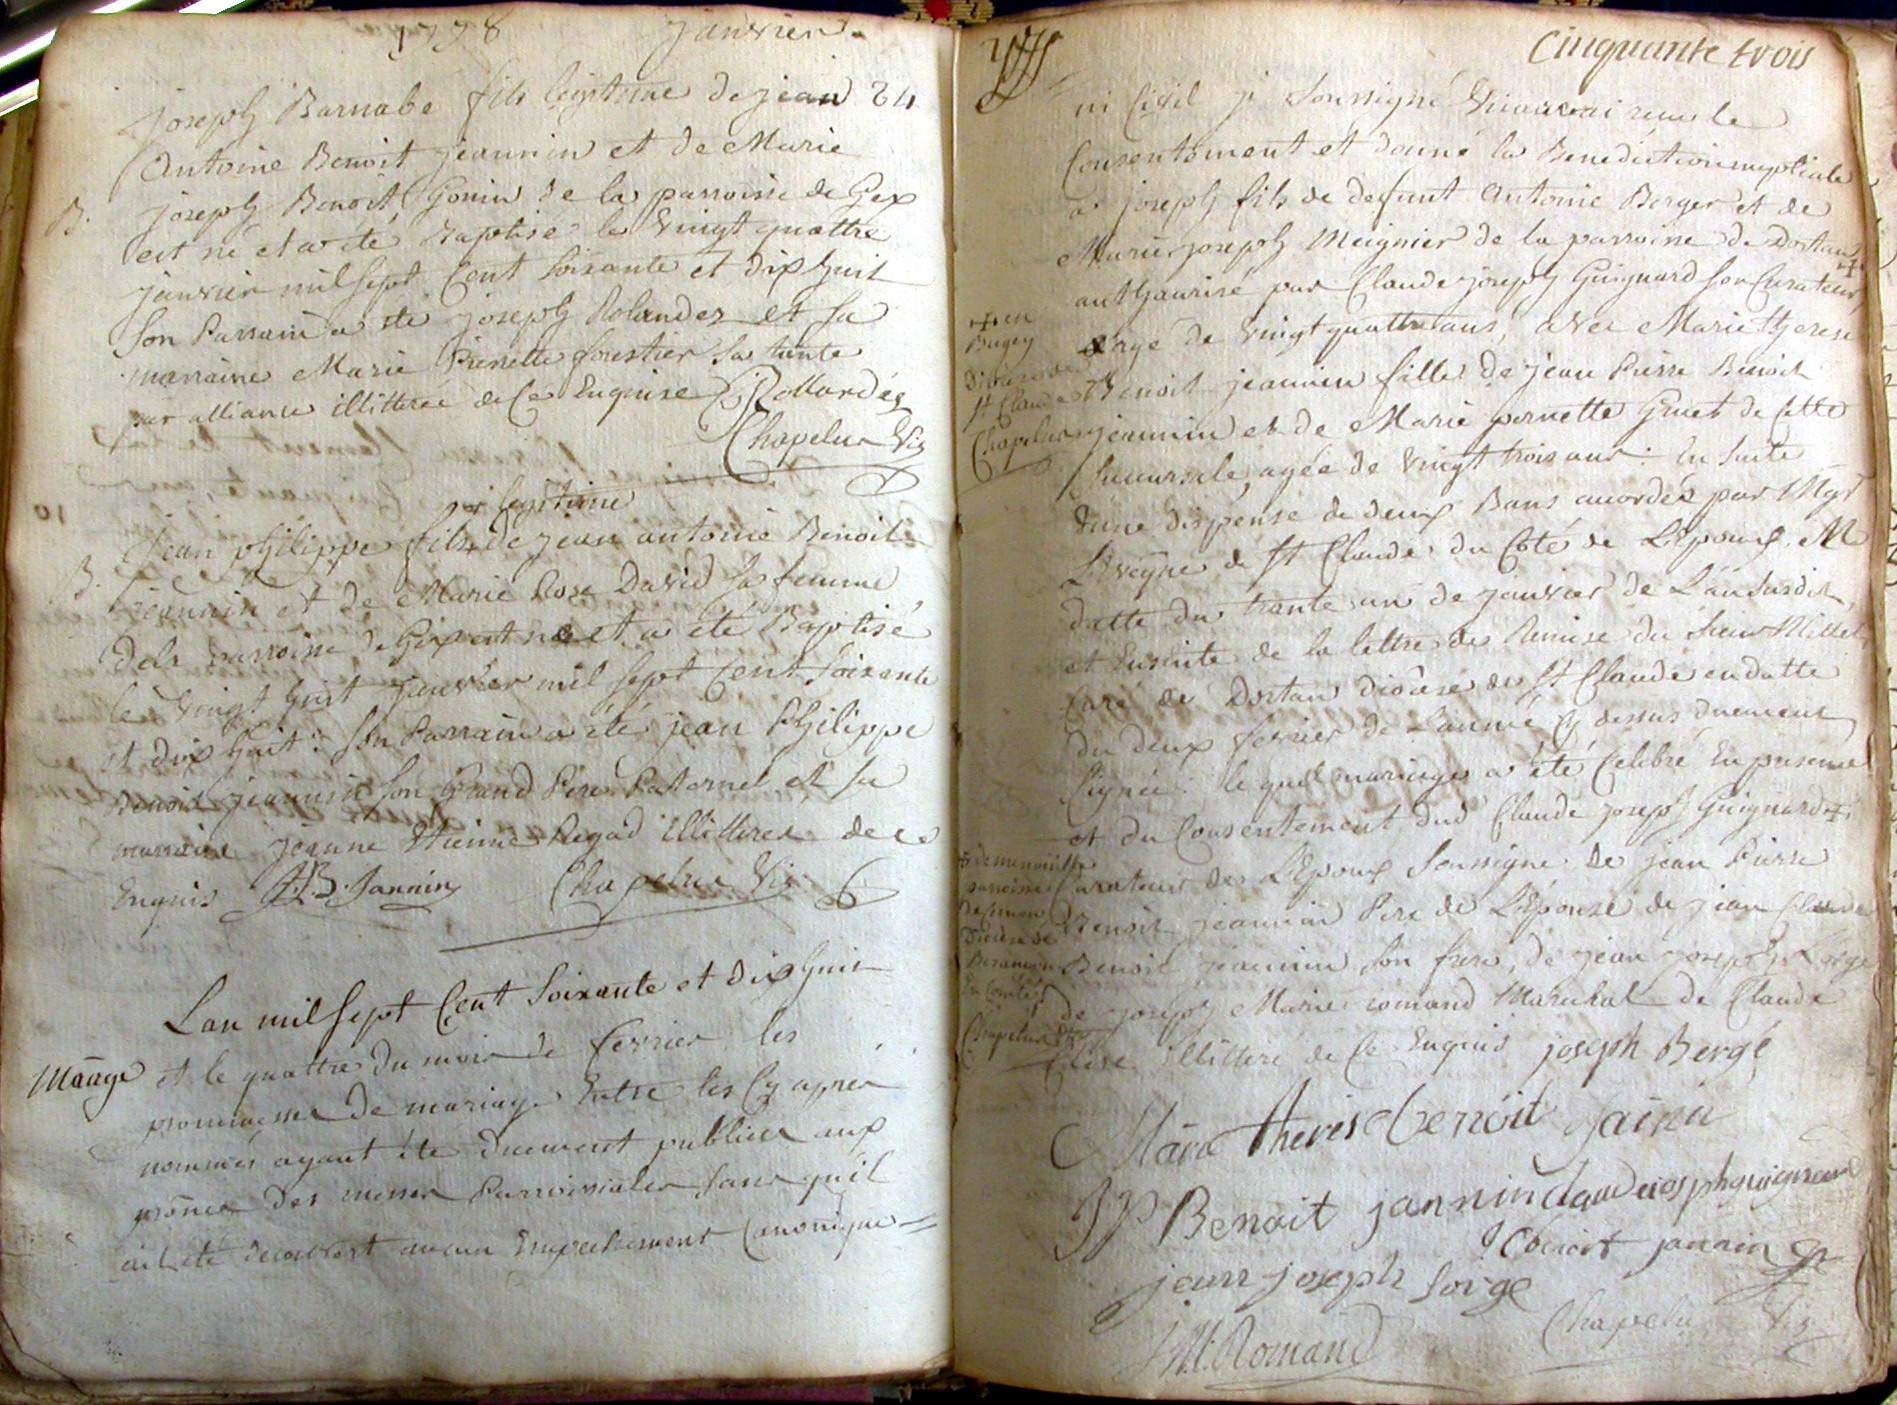 1778 janvier
joseph Barnabe fils legitime de jean 24
antoine Benoit jeannin et de Marie
B. joseph Benoit Gonin de la parroisse de Gex
est né et a été Baptisé le vingt quattre
janvier mil sept Cent soixante et dix huit
son Parrain a été joseph Rolandez et sa
marraine Marie Pierrette forestier sa tante
par alliance illitterée de ce Enquise
Chapelu Vic
legitime
jean philippe fils de jean antoine Benoit
B. jeannin et de Marie Rose David sa femme
dela parroisse de Gex est né et a été Baptisé
le vingt huit janvier mil sept Cent soixante
et dix huit : son Parrain a été jean Philippe
Benoit jeannin son Grand Pere Paternel et sa
marraine jeanne Etienne Regad illitterés de ce
Enquis Jannin Chapelu Vic
Lan mil sept Cent soixante et dix huit
Mariage et le quattre du mois de fevrier les
promesses de mariage Entre les cy après
nommés ayant été duement publiées aux
prônes des messes Parroissiales sans qu'il
ait été decouvert aucun Empechement Canonique
Cinquante trois
ni Civil je soussigné Vicaire ai reçu le
Consentement et donné la Benediction nuptiale
a joseph fils de defunt Antoine Berger et de
Marie joseph Meignier de la parroisse de Dortan +
authaurisé par Claude joseph Guignard son Curateur
+ en
Bugey
diocese de
st Claude
Chapelu
agé de vingt quattre ans, avec Marie therese
Benoit jeannin fille de jean Pierre Benoit
jeannin et de Marie pernette Gruet de Cette
succursale, agée de vingt trois ans : En suite
d'une dispense de deux Bans accordée par Mgr
L'Evêque de st Claude du Coté de L'Epoux En
datte du trante un de janvier de L'an susdit
et Ensuite de la lettre de Remise du sieur Millet
Curé de Dortan diocése de st Claude en datte
du deux fevrier de L'année cy dessus duement
signée : le quel mariage a été Celebré En presence
et du Consentement dud Claude joseph Guignard +
parroisse
diocese de
Besançon
En Comté
Chapelu Vic
Curateur de L'Epoux soussigné de jean Pierre
Benoit jeannin Pere de L'Epouse de jean Claude
Benoit jeannin son frere, de jean joseph Lorge
de joseph Marie romand Marechal de Claude
illitteré de ce Enquis joseph Bergé
Mara therese benoit Jainin
JP Benoit jannin claude iosph guignard
JC benoit jannin
jean joseph Lorge
JM. Romand Chapelu Vic